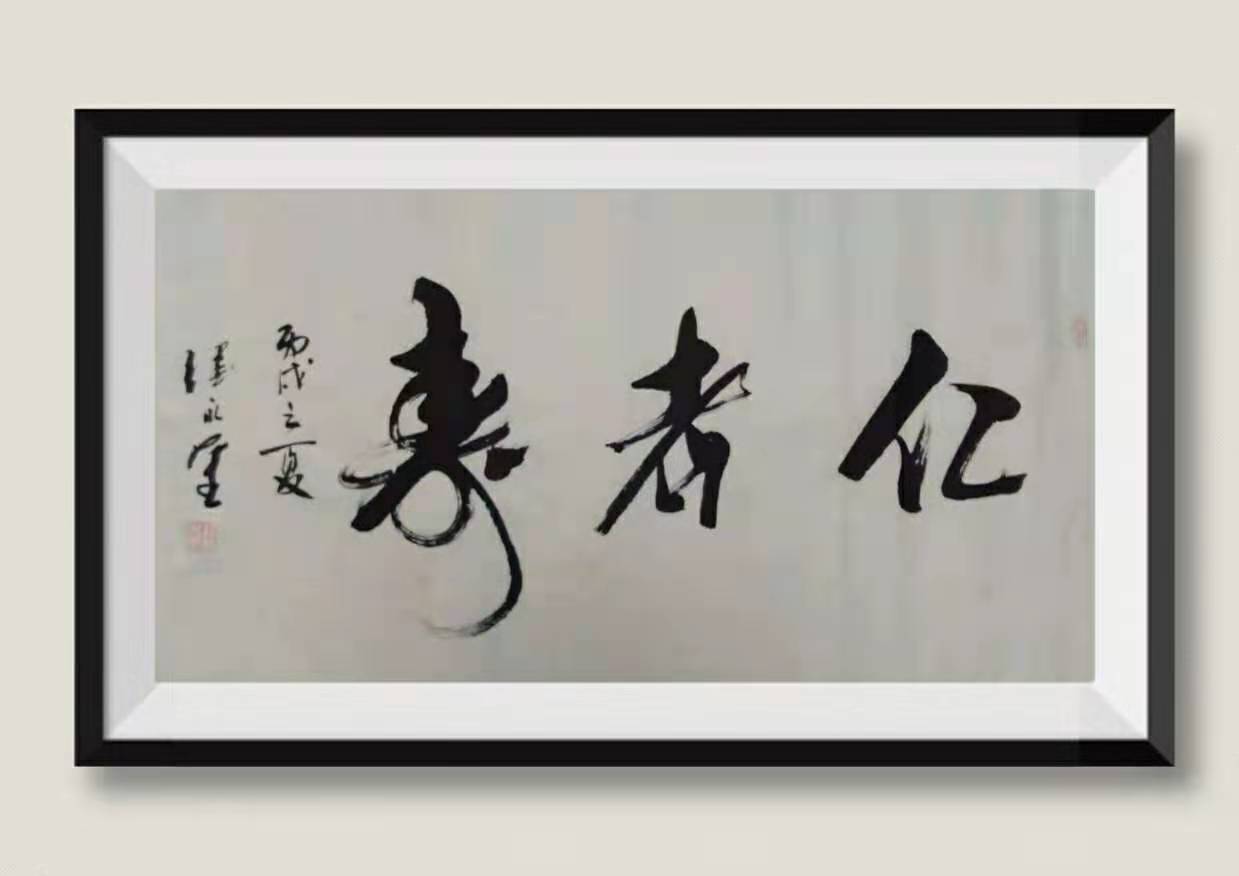 仁者寿
丙戌之夏
永